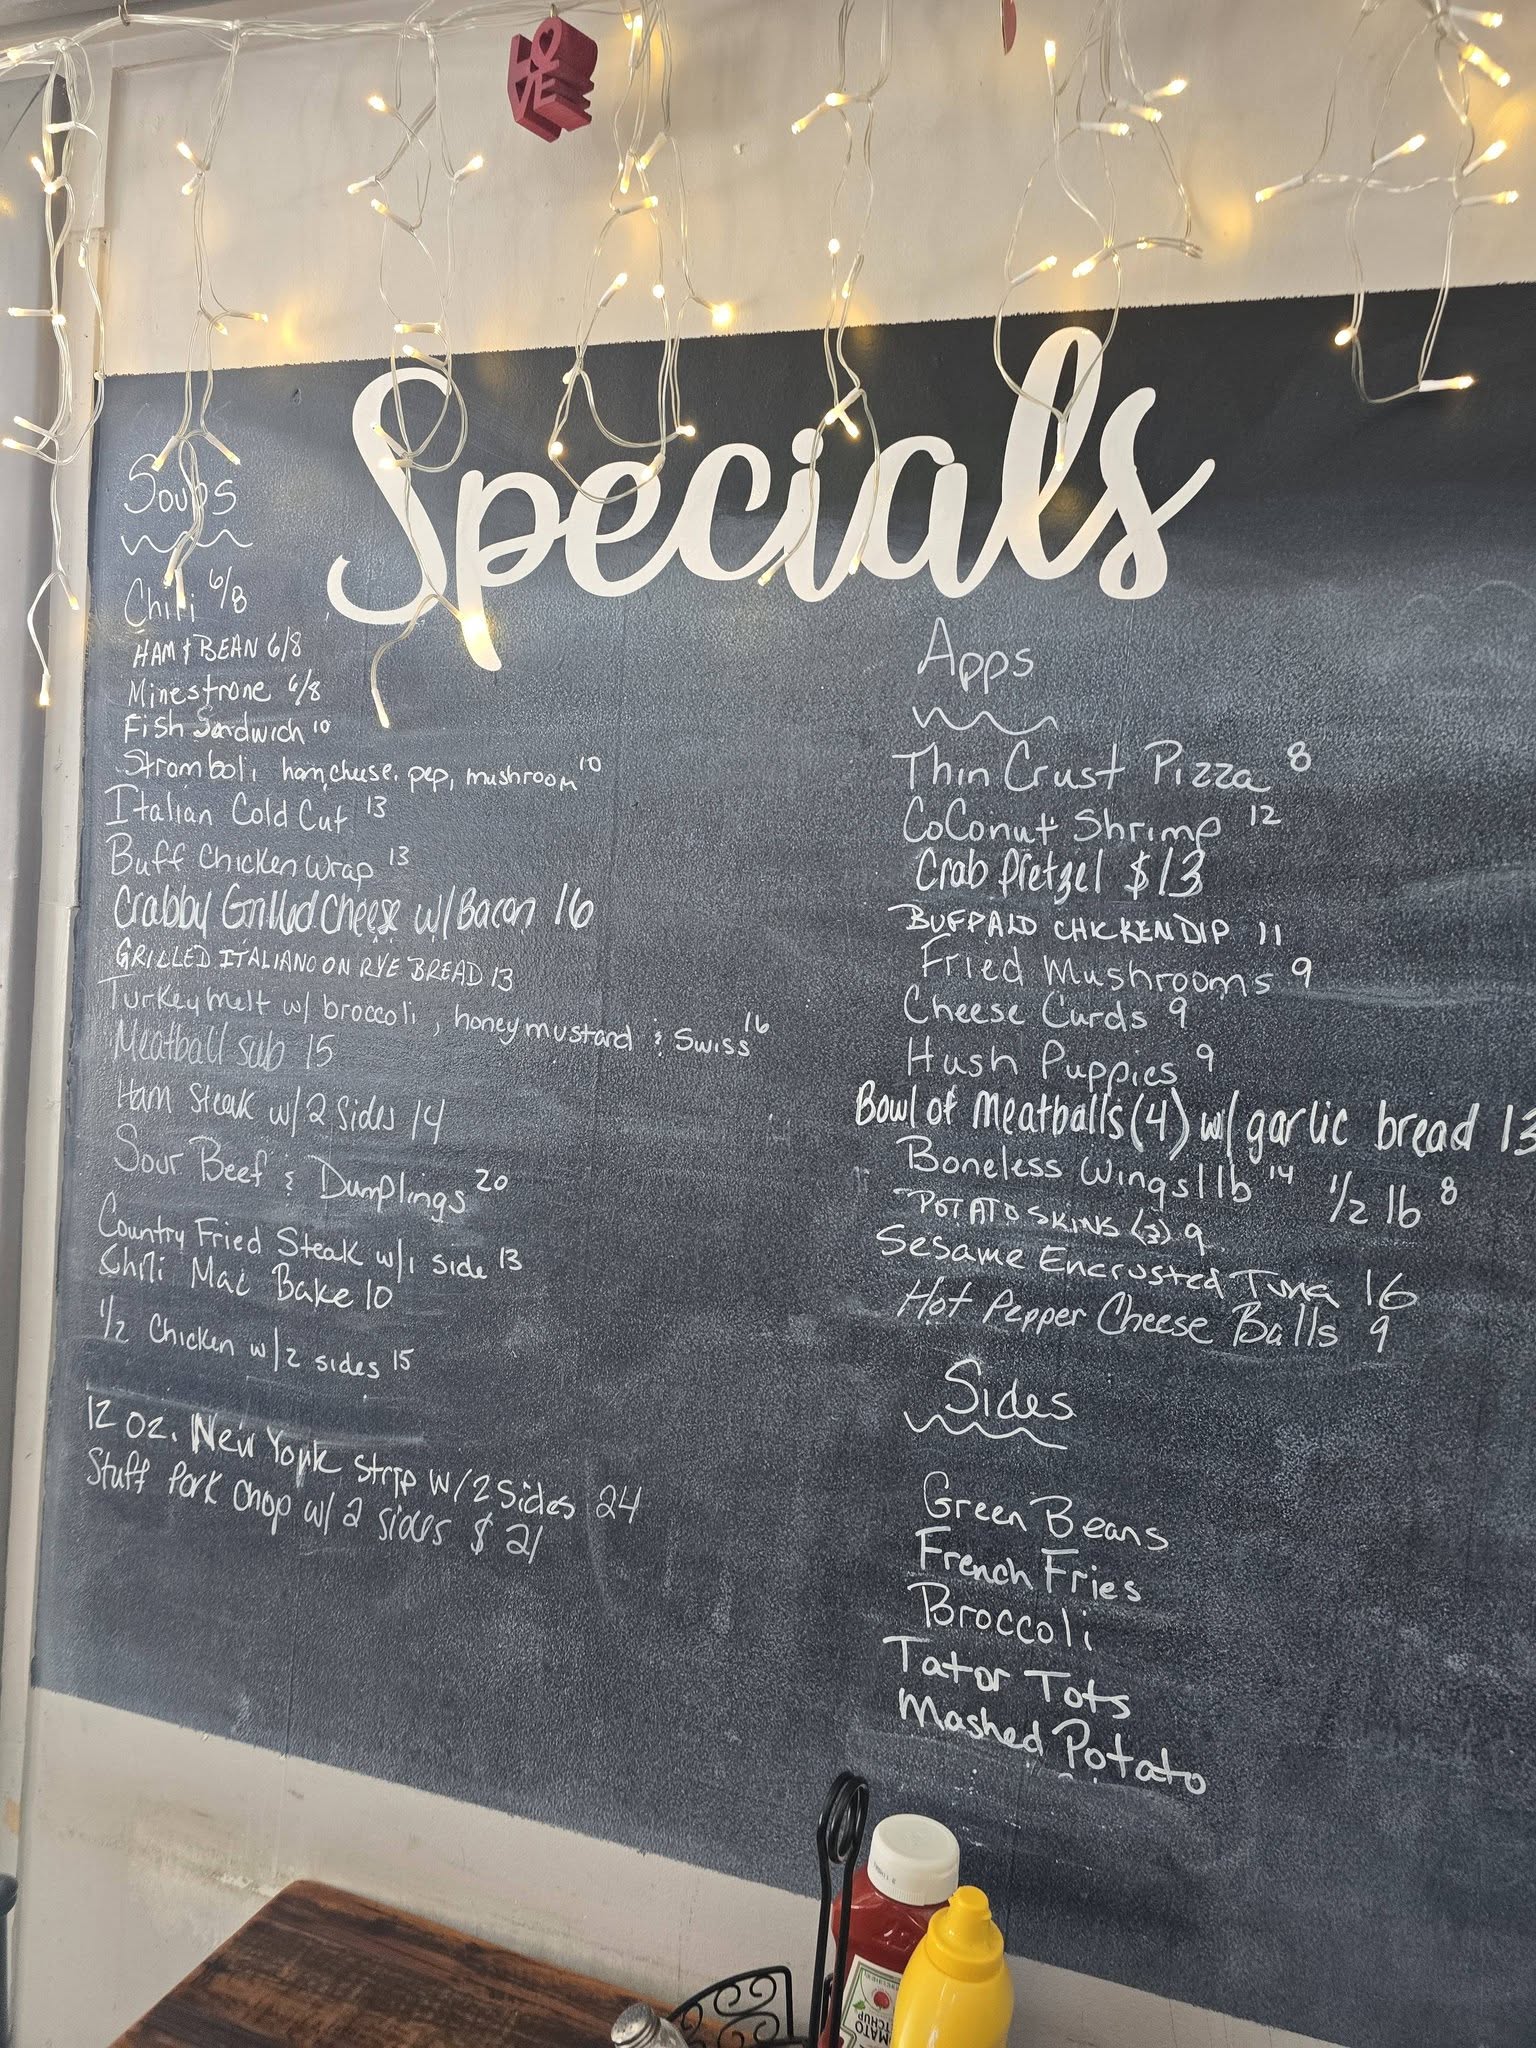 LOVE
Specials
Soups
Chili 6/8
HAM & BEAN 6/8
Minestrone 6/8
Fish Sandwich 10
Stromboli, ham, cheese, pep, mushroom 10
Italian Cold Cut 13
Buff Chicken Wrap 13
Crabby Grilled Cheese w/ Bacon 16
GRILLED ITALIANO ON RYE BREAD 13
Turkey melt w/ broccoli, honey mustard & Swiss 16
Meatball sub 15
Ham Steak w/ 2 Sides 14
Sour Beef & Dumplings 20
Country Fried Steak w/1 side 13
Chili Mac Bake 10
1/2 Chicken w/2 sides 15
12 oz. New York Strip w/2 Sides 24
Stuff Pork Chop w/ 2 sides $21
Apps
Thin Crust Pizza 8
CoConut Shrimp 12
Crab Pretzel $13
BUFFALO CHICKEN DIP 11
Fried Mushrooms 9
Cheese Curds 9
Hush Puppies 9
Bowl of Meatballs (4) w/ garlic bread 13
Boneless Wings 1 lb 14 1/2 lb 8
POTATO SKINS (3) 9
Sesame Encrusted Tuna 16
Hot Pepper Cheese Balls 9
Sides
Green Beans
French Fries
Broccoli
Tator Tots
Mashed Potato